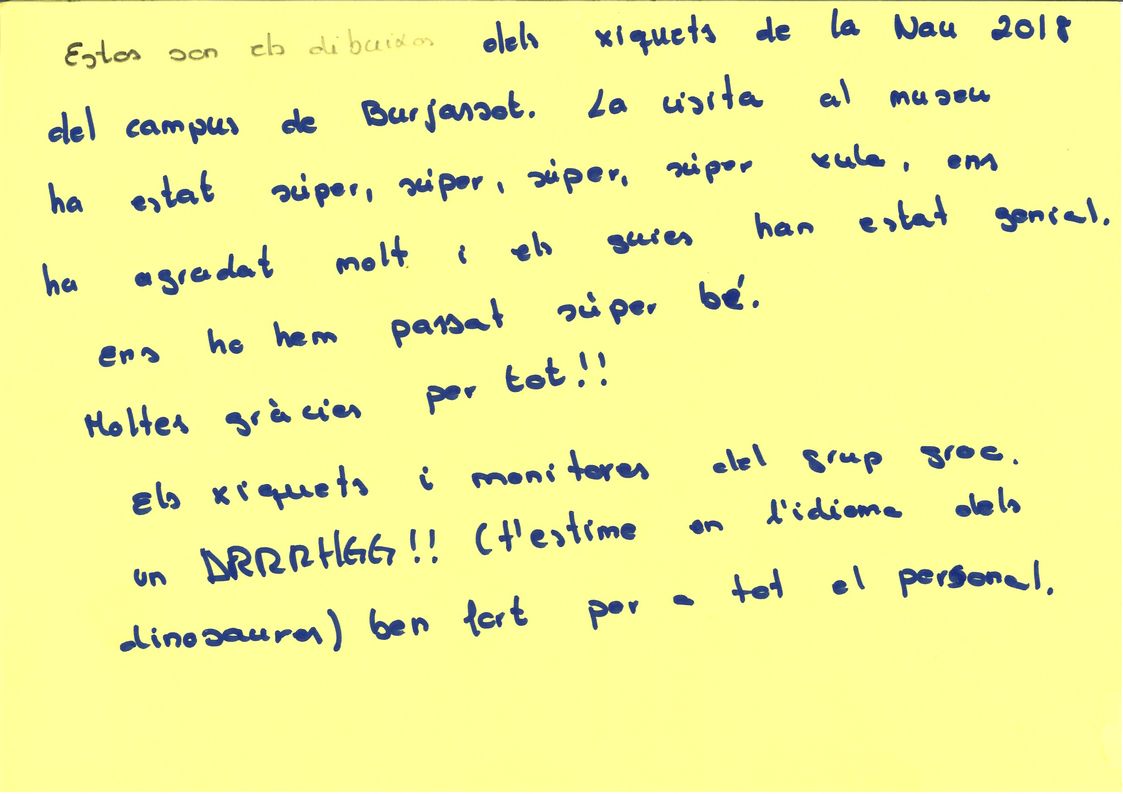 Estos son els dibuixos dels xiquets de la Nau 2018
del campus de Burjassot. La visita al museu
ha estat súper, súper, súper, súper xulo, ens
ha agradat molt i els guies han estat genial.
Ens ho hem passat súper bé.
Moltes gràcies per tot!!
Els xiquets i monitores del grup groc.
un DRRRHGG!! (t'estime en l'idioma dels
dinosaures) ben fort per a tot el personal.